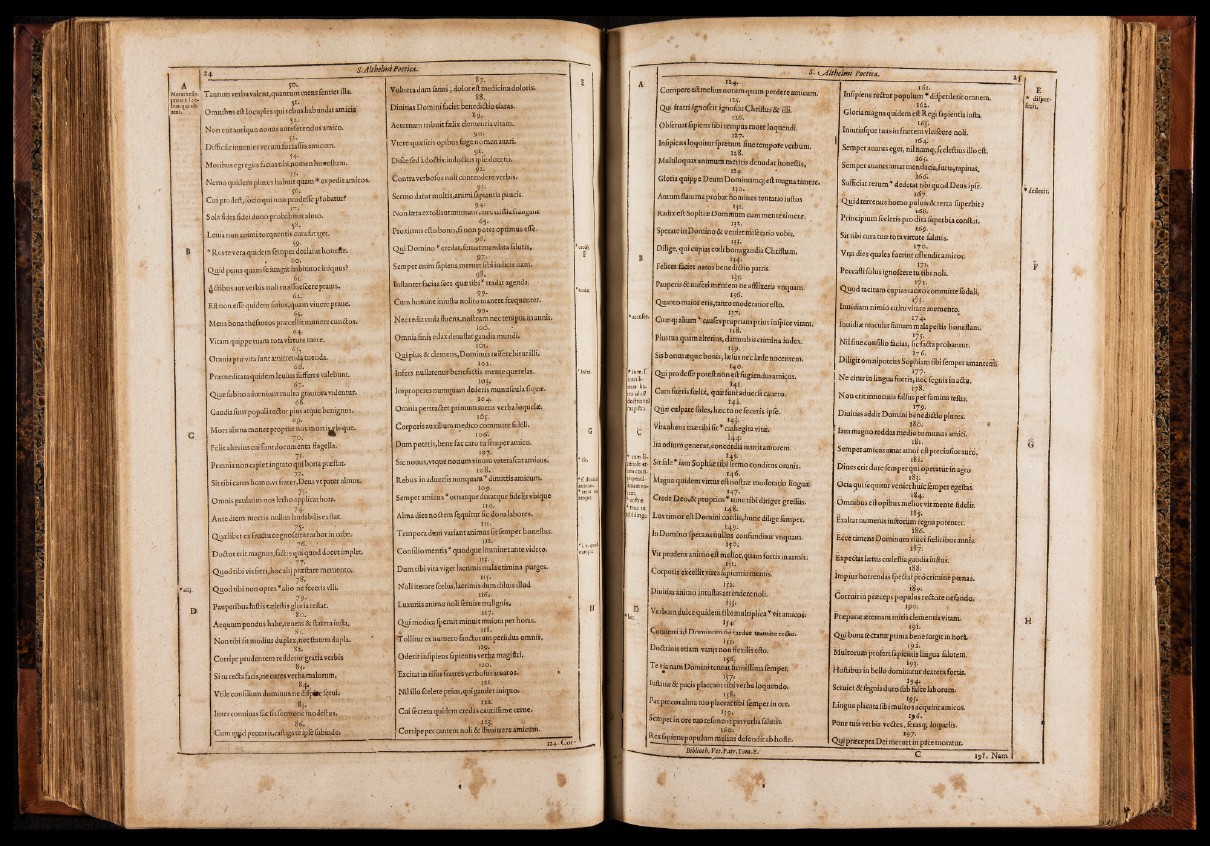 24
S. Althelmi Poetica.
A
50.
Tantum verba valent, quantum mens sentiet illa.
51.
Omnibus est locuples qui rebus habundat amicis
52.
Non erit antiquo nouus anteferendus amico.
53.
Difficile inuenies verum fortassis amicum.
54.
Moribus egregiis facias tibi nomen honestum.
55.
Nemo quidem plures habuit quam * expedit amicos.
56.
Cui prodest, socio qui non prodesse probatur?
57.
Sola fides fidei dono probabitur almo.
58.
Leuia non animi torquentis cura fatiget.
B
59.
* Reste vera quidem semper declarat honeste.
60.
Quid peius quam se iungit
61.
62.
Est non esse quidem satius, quam viuere praue.
63.
Mens bona thesauros præcellit munere cunctos.
64.
Vitam quippe tuam tota virtute
65.
Omnia pro vita sunt amittenda tuenda.
66.
Præmeditata quidem leuius sufferre valebunt.
67.
Quæ subito adueniunt multo grauiora videntur.
68.
Gaudia sunt populi rector pius atque benignus.
C
69.
Mors aliena monet propriæ nos mortis vbique.
70.
Felix alterius cui sunt documenta flagella.
71.
Præmia non capiet ingrato qui bona præstat.
72.
Sit tibi carus homo, vt frater, Deus vt pater almus.
73.
Omnis paulatim nos letho applicat hora.
74.
Ante diem mortis nullus laudabilis extat.
75.
Quælibet ex fructu cognoscitur arbor in orbe.
76.
Doctor erit magnus, factis qui quod docet implet.
77.
Quod tibi vis fieri, hoc alij præstare memento.
*alij.
78.
Quod tibi non optes * alio ne feceris vlli.
79.
Pauperibus iustis cælestis gloria restat.
D
80.
Aequum pondus habe, teneas & statera iusta,
81.
Non tibi sit modius duplex, nec statera dupla.
82.
Corripe prudentem reddetur gratia verbis
83.
Si tu recta facis, ne cures verba malorum.
84.
Vtile consilium dominus ne despice serui.
85.
Inter conuiuas fac sis sermone modestus.
86.
Cum quid peccaris, castigate ipse subinde.
E
87.
Vulnera dum sanas, dolor est medicina doloris.
88.
Diuitias Domini faciet benedictio claras.
89.
Aeternam tribuit fælix clementia vitam.
90.
Vtere quæsitis opibus fuge nomen auari.
91.
Disce sed à doctis: indoctos ipse doceto.
92.
Contra verbosos noli contendere verbis.
93.
Sermo datur multis, animi sapientia paucis.
94.
95.
Proximus esto bonis, si non potes optimus esse.
96.
Qui Domino * credat, seruat mandata salutis,
F
97.
Semper enim sapiens memet sibi iudicis iram.
98.
Instanter facias sors quæ tibi * tradat agenda.
99.
Cum homine iniusto nolito manere frequenter.
99.
100.
Omnia finis edax deuastat gaudia mundi.
101.
Qui pius & clemens, Dominus noscere bitur illi.
102.
Infers nullatenus benefactis mente querelas.
103.
Improperes numquam dederis munuscula si quæ.
104.
Omnia pertractet primum mens verba loquelæ.
105.
Corporis auxilium medico committe fideli.
G
106.
Dum poteris, bene fac caro tu semper amico.
107.
Sic nouus, vtque nouum vinum veterascat amicus.
108.
Rebus in aduersis nunquam * dimittis amicum.
109.
Semper amicus * ornatque ducatque fidelis vbique
110.
Alma dies noctem sequitur sic dona labores.
111.
Tempora dum variant animus sit semper honestus.
112.
Consilio mentis * quodque imminet ante videto.
113.
Dum tibi vita viget lacrimis mala crimina purges.
115.
Noli iterare scelus, lacrimis dum diluis illud
H
116.
Luxuriis animo noli seruire malignis,
117.
Qui modica spernit minuit maiora per horas.
118.
Tollitur ex numero sanctorum perfidus omnis,
119.
Oderit insipiens sapientis verba magistri.
120.
121.
Nil illo scelere peius, qui gaudet iniquo.
122.
Cui secreta quidem credas cautissime cerne.
123.
Corripe peccantem noli & dimittere amicum.
124. Cor-
S. Althelmi Poetica.
25
A
124.
Corripere est melius notum quam perdere amicum.
125.
Qui fratri ignoscit ignoscet Christus & illi.
126.
Obseruat sapiens sibi tempus more loquendi.
127.
Insipiens loquitur spretum sine tempore verbum.
128.
Multiloqua animum mentitis denudat honestis,
129.
Gloria quippe Deum Dominumq; est magna timere.
130.
Aurum flamma probat homines tentatio iustos
131.
Radix est Sophiæ Dominum cum mente timere.
132.
Sperate in Domino & veniet miseratio vobis,
133.
Dilige, qui cupias cœli bona gaudia Christum.
B
134.
Felices faciet natos benedictio patris.
135.
Pauperis & miseri mentem ne afflixeris vnquam.
136.
Quanto maior eris, tanto moderatior esto.
137.
Cumq; alium * causes propriam prius inspice vitam.
138.
Plus tua quam alterius, damnabis crimina iudex.
139.
Sis bonus atque bonis, læsus nec læde nocentem.
140.
Qui prodesse potest non est fugiendus amicus.
141.
Cum fueris fœlix, quæ sunt aduersa caueto.
142.
Quæ culpare soles, hæc tu ne feceris ipse.
C
143.
Vita aliena tuæ tibi fit * cathegita vitæ.
144.
Ira odium generat, concordia nutrit amorem.
145.
Sit sale * iam Sophiæ tibi sermo conditus omnis.
146.
Magna quidem virtus est nostræ moderatio linguæ
147.
Crede Deo, & proprios * tunc tibi diriget gressus.
148.
Lux timor est Domini cordis, hunc dilige semper.
149.
In Domino sperans nullus confunditur vnquam.
150.
Vir prudens animo est melior, quam fortis in armis.
151.
Corporis excellit vires sapientia mentis.
152.
Diuitias animo iniustas attendere noli.
D
153.
Verbum dulce quidem tibi multiplica * vt amicos:
154.
Conuerti ad Dominum ne tardes tramite recto.
155.
Doctrinis etiam varijs non flexilis esto.
156.
Te via nam Domini teneat firmissima semper.
157.
Iustitiæ & pacis placeant tibi verba loquendo.
158.
Pax pie cor alma tuo placeat tibi semper in ore.
159.
Semper in ore tuo resonent pia verba salutis.
160.
Rex sapiens populum melius defendit ab hoste.
Biblioth. Vet. Patr. Tom. 8.
E
161.
Insipiens rector populum * disperderit omnem.
162.
Gloria magna quidem est Regi sapientia iusta.
163.
Iniuriasque tuas in fratrem vlciscere noli.
164.
Semper auarus eget, nil namq; scelestius illo est.
165.
Semper auarus amat mendacia, furta, rapinas,
166.
Sufficiat rerum * dedetat tibi quod Deus ipse.
167.
Quid terrenus homo puluis & terra superbit?
168.
Principium sceleris pro dira superbia constat.
169.
Sit tibi cura tuæ tota virtute salutis.
170.
Vna dies quales fuerint ostendit amicos.
F
171.
Peccasti solus ignoscere tu tibi noli.
172.
Quod tacitum cupias tacito committe sodali,
173.
Inuidiam nimio cultu vitare memento.
174.
Inuidiæ maculat famam mala pestis honestam.
175.
Nil sine consilio facias, sic facta probantur.
176.
Diligit omnipotens Sophiam sibi semper amantem
177.
Ne citus in lingua fueris, nec segnis in actu.
178.
Non erit innocuus falsus per famina testis.
179.
Diuitias addit Domini benedictio plures.
180.
Iam magno reddas medio tu munus amici.
G
181.
Semper amicus amat amor est preciosior auro.
182.
Diues erit dore semper qui operatur in agro.
183.
Ocia qui sequitur veniet huic semper egestas.
184.
Omnibus est opibus melior vir mente fidelis.
185.
Exaltat numerus iustorum regna potenter.
186.
Ecce timens Dominum viuet felicibus annis
187.
Expectat lætus cœlestia gaudia iustus.
188.
Impius horrendas spectat pro crimine pœnas.
189.
Corruit in præceps populus rectore nefando.
H
190.
Præparat æternam mitis clementia vitam.
191.
Qui bona sectatur prima bene surgit in hora.
192.
Multorum profert sapientis lingua salutem.
193.
Hostibus in bello dominatur dextera fortis.
194.
Seruiet & segnis duro sub fasce laborum.
195.
Lingua placata sibi multos acquirit amicos.
196.
Pone tuis verbis vectes, seras; loquelis.
197.
Qui præcepta Dei metuet in pace moratur.
C
198. Nam